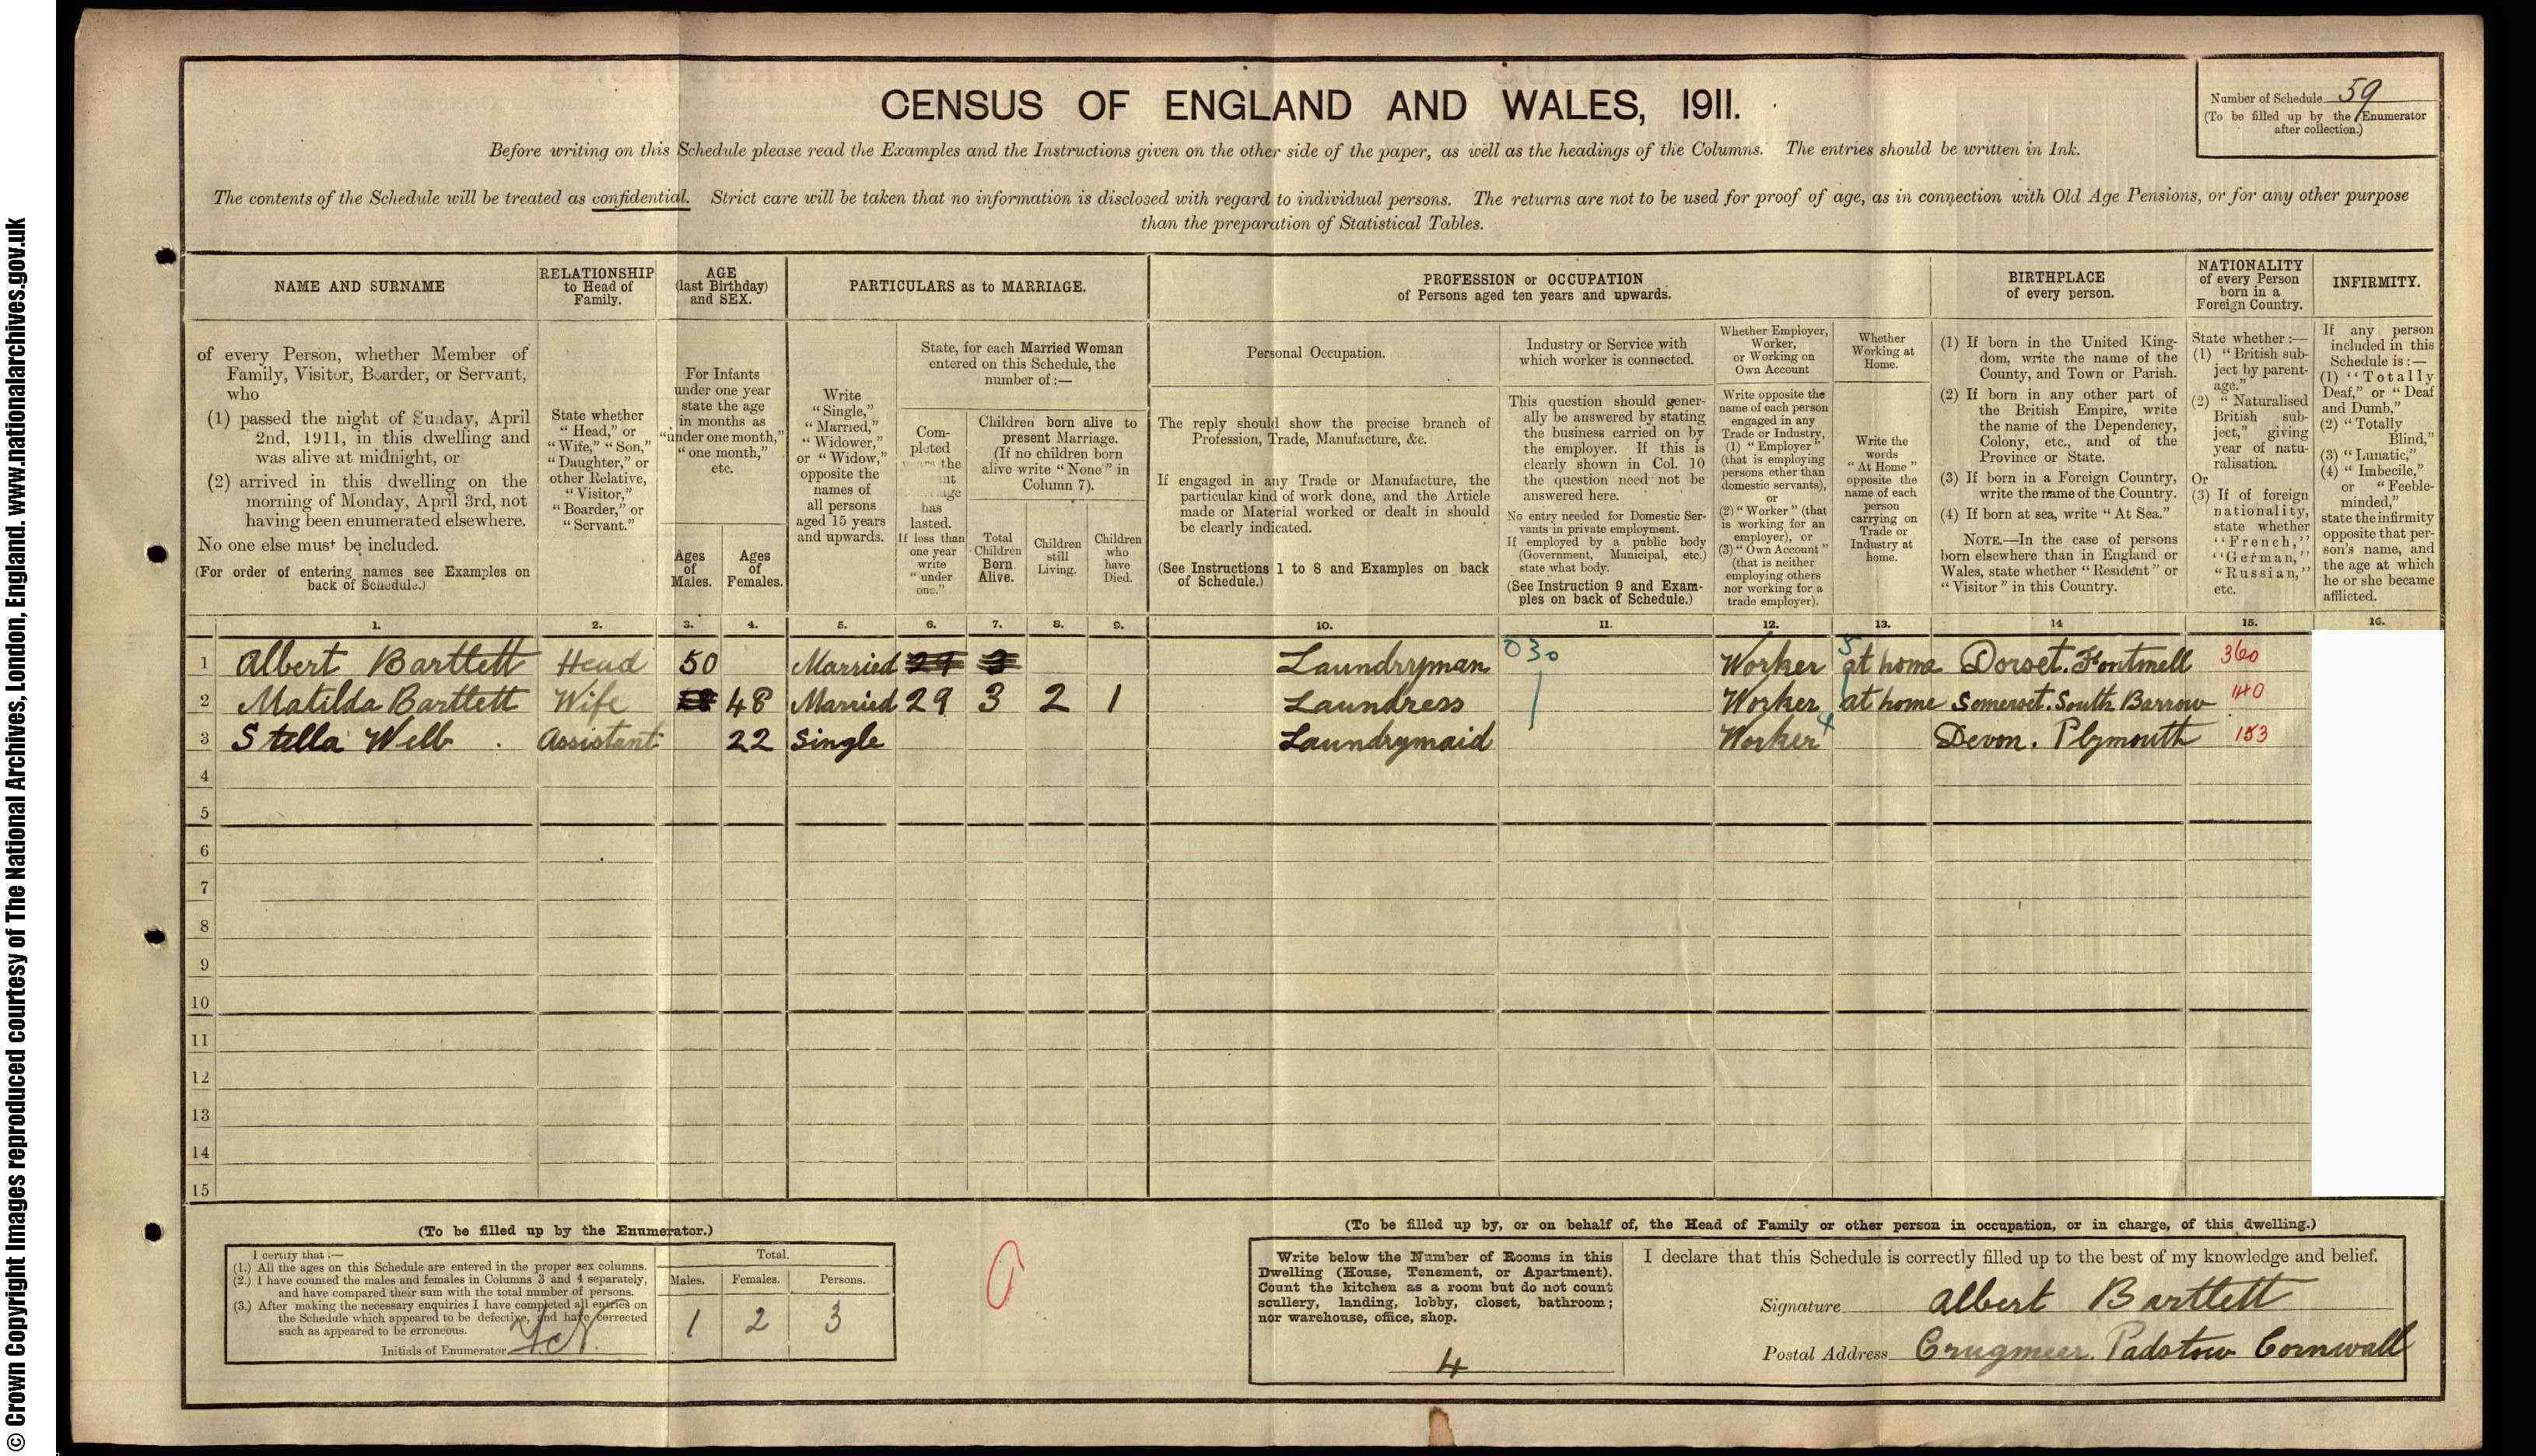 © Crown Copyright Images reproduced courtesy of The National Archives, London, England. www.nationalarchives.gov.uk
CENSUS OF ENGLAND AND WALES, 1911.
Number of Schedule 59
(To be filled up by the Enumerator
after collection.)
Before writing on this Schedule please read the Examples and the Instructions given on the other side of the paper, as well as the headings of the Columns. The entries should be written in Ink.
The contents of the Schedule will be treated as confidential. Strict care will be taken that no information is disclosed with regard to individual persons. The returns are not to be used for proof of age, as in connection with Old Age Pensions, or for any other purpose
than the preparation of Statistical Tables.
NAME AND SURNAME
of every Person, whether Member of
Family, Visitor, Boarder, or Servant,
who
(1) passed the night of Sunday, April
2nd, 1911, in this dwelling and
was alive at midnight, or
(2) arrived in this dwelling on the
morning of Monday, April 3rd, not
having been enumerated elsewhere.
No one else must be included.
(For order of entering names see Examples on
back of Schedule.)
RELATIONSHIP
to Head of
Family.
State whether
"Head," or
"Wife," "Son,"
"Daughter," or
other Relative,
"Visitor,"
"Boarder," or
"Servant."
AGE
(last Birthday)
and SEX.
For Infants
under one year
state the age
in months as
"under one month,"
"one month,"
etc.
Ages
of
Males.
Ages
of
Females.
PARTICULARS as to MARRIAGE.
Write
"Single,"
"Married,"
"Widower,"
or "Widow,"
opposite the
names of
all persons
aged 15 years
and upwards.
State, for each Married Woman
entered on this Schedule, the
number of:—
Com-
pleted
the
has
lasted.
If less than
one year
write
"under
one."
Children born alive to
present Marriage.
(If no children born
alive write "None" in
Column 7).
Total
Children
Born
Alive.
Children
still
Living.
Children
who
have
Died.
PROFESSION or OCCUPATION
of Persons aged ten years and upwards.
Personal Occupation.
The reply should show the precise branch of
Profession, Trade, Manufacture, &c.
If engaged in any Trade or Manufacture, the
particular kind of work done, and the Article
made or Material worked or dealt in should
be clearly indicated.
(See Instructions 1 to 8 and Examples on back
of Schedule.)
Industry or Service with
which worker is connected.
This question should gener-
ally be answered by stating
the business carried on by
the employer. If this is
clearly shown in Col. 10
the question need not be
answered here.
No entry needed for Domestic Ser-
vants in private employment.
If employed by a public body
(Government, Municipal, etc.)
state what body.
(See Instruction 9 and Exam-
ples on back of Schedule.)
Whether Employer,
Worker,
or Working on
Own Account
Write opposite the
name of each person
engaged in any
Trade or Industry,
(1) "Employer"
(that is employing
persons other than
domestic servants),
or
(2) "Worker" (that
is working for an
employer), or
(3) "Own Account"
(that is neither
employing others
nor working for a
trade employer).
Whether
Working at
Home.
Write the
words
"At Home"
opposite the
name of each
person
carrying on
Trade or
Industry at
home.
BIRTHPLACE
of every person.
(1) If born in the United King-
dom, write the name of the
County, and Town or Parish.
(2) If born in any other part of
the British Empire, write
the name of the Dependency,
Colony, etc., and of the
Province or State.
(3) If born in a Foreign Country,
write the name of the Country.
(4) If born at sea, write "At Sea."
NOTE.—In the case of persons
born elsewhere than in England or
Wales, state whether "Resident" or
"Visitor" in this Country.
NATIONALITY
of every Person
born in a
Foreign Country.
State whether:—
(1) "British sub-
ject by parent-
age."
(2) "Naturalised
British sub-
ject," giving
year of natu-
ralisation.
Or
(3) If of foreign
nationality,
state whether
"French,"
"German,"
"Russian,"
etc.
INFIRMITY.
If any person
included in this
Schedule is:—
(1) "Totally
Deaf," or "Deaf
and Dumb,"
(2) "Totally
Blind,"
(3) "Lunatic,"
(4) "Imbecile,"
or "Feeble-
minded,"
state the infirmity
opposite that per-
son's name, and
the age at which
he or she became
afflicted.
1. 2. 3. 4. 5. 6. 7. 8. 9. 10. 11. 12. 13. 14 15. 16.
1 Albert Bartlett Head 50 Married 29 3 Laundryman 030 Worker 5 at home Dorset. Fontmell 360
2 Matilda Bartlett Wife 48 Married 29 3 2 1 Laundress Worker at home Somerset. South Barrow 140
3 Stella Webb. Assistant 22 Single Laundrymaid Worker 4 Devon. Plymouth 153
4
5
6
7
8
9
10
11
12
13
14
15
(To be filled up by the Enumerator.)
I certify that:—
(1.) All the ages on this Schedule are entered in the proper sex columns.
(2.) I have counted the males and females in Columns 3 and 4 separately,
and have compared their sum with the total number of persons.
(3.) After making the necessary enquiries I have completed all entries on
the Schedule which appeared to be defective, and have corrected
such as appeared to be erroneous.
Initials of Enumerator
Total.
Males. Females. Persons.
1 2 3
(To be filled up by, or on behalf of, the Head of Family or other person in occupation, or in charge, of this dwelling.)
Write below the Number of Rooms in this
Dwelling (House, Tenement, or Apartment).
Count the kitchen as a room but do not count
scullery, landing, lobby, closet, bathroom;
nor warehouse, office, shop.
4
I declare that this Schedule is correctly filled up to the best of my knowledge and belief.
Signature Albert Bartlett
Postal Address Crugmeer. Padstow Cornwall